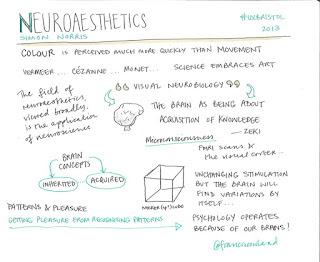 NEUROAESTHETICS
SIMON NORRIS
#UXBRISTOL
2013
COLOUR IS PERCEIVED MUCH MORE QUICKLY THAN MOVEMENT
VERMEER... CÉZANNE... MONET... SCIENCE EMBRACES ART
VISUAL NEUROBIOLOGY
The field of
neuroaesthetics,
viewed broadly,
is the application
of neuroscience
THE BRAIN AS BEING ABOUT
ACQUISITION OF KNOWLEDGE
— ZEKI
Microconsciousness
FMRI scans &
the visual cortex...
BRAIN
CONCEPTS
INHERITED
ACQUIRED
NECKER CUBE
UNCHANGING STIMULATION
BUT THE BRAIN WILL
FIND VARIATIONS BY
ITSELF...
PATTERNS & PLEASURE
GETTING PLEASURE FROM RECOGNISING PATTERNS
PSYCHOLOGY OPERATES
BECAUSE OF OUR BRAINS!
@francisrowland